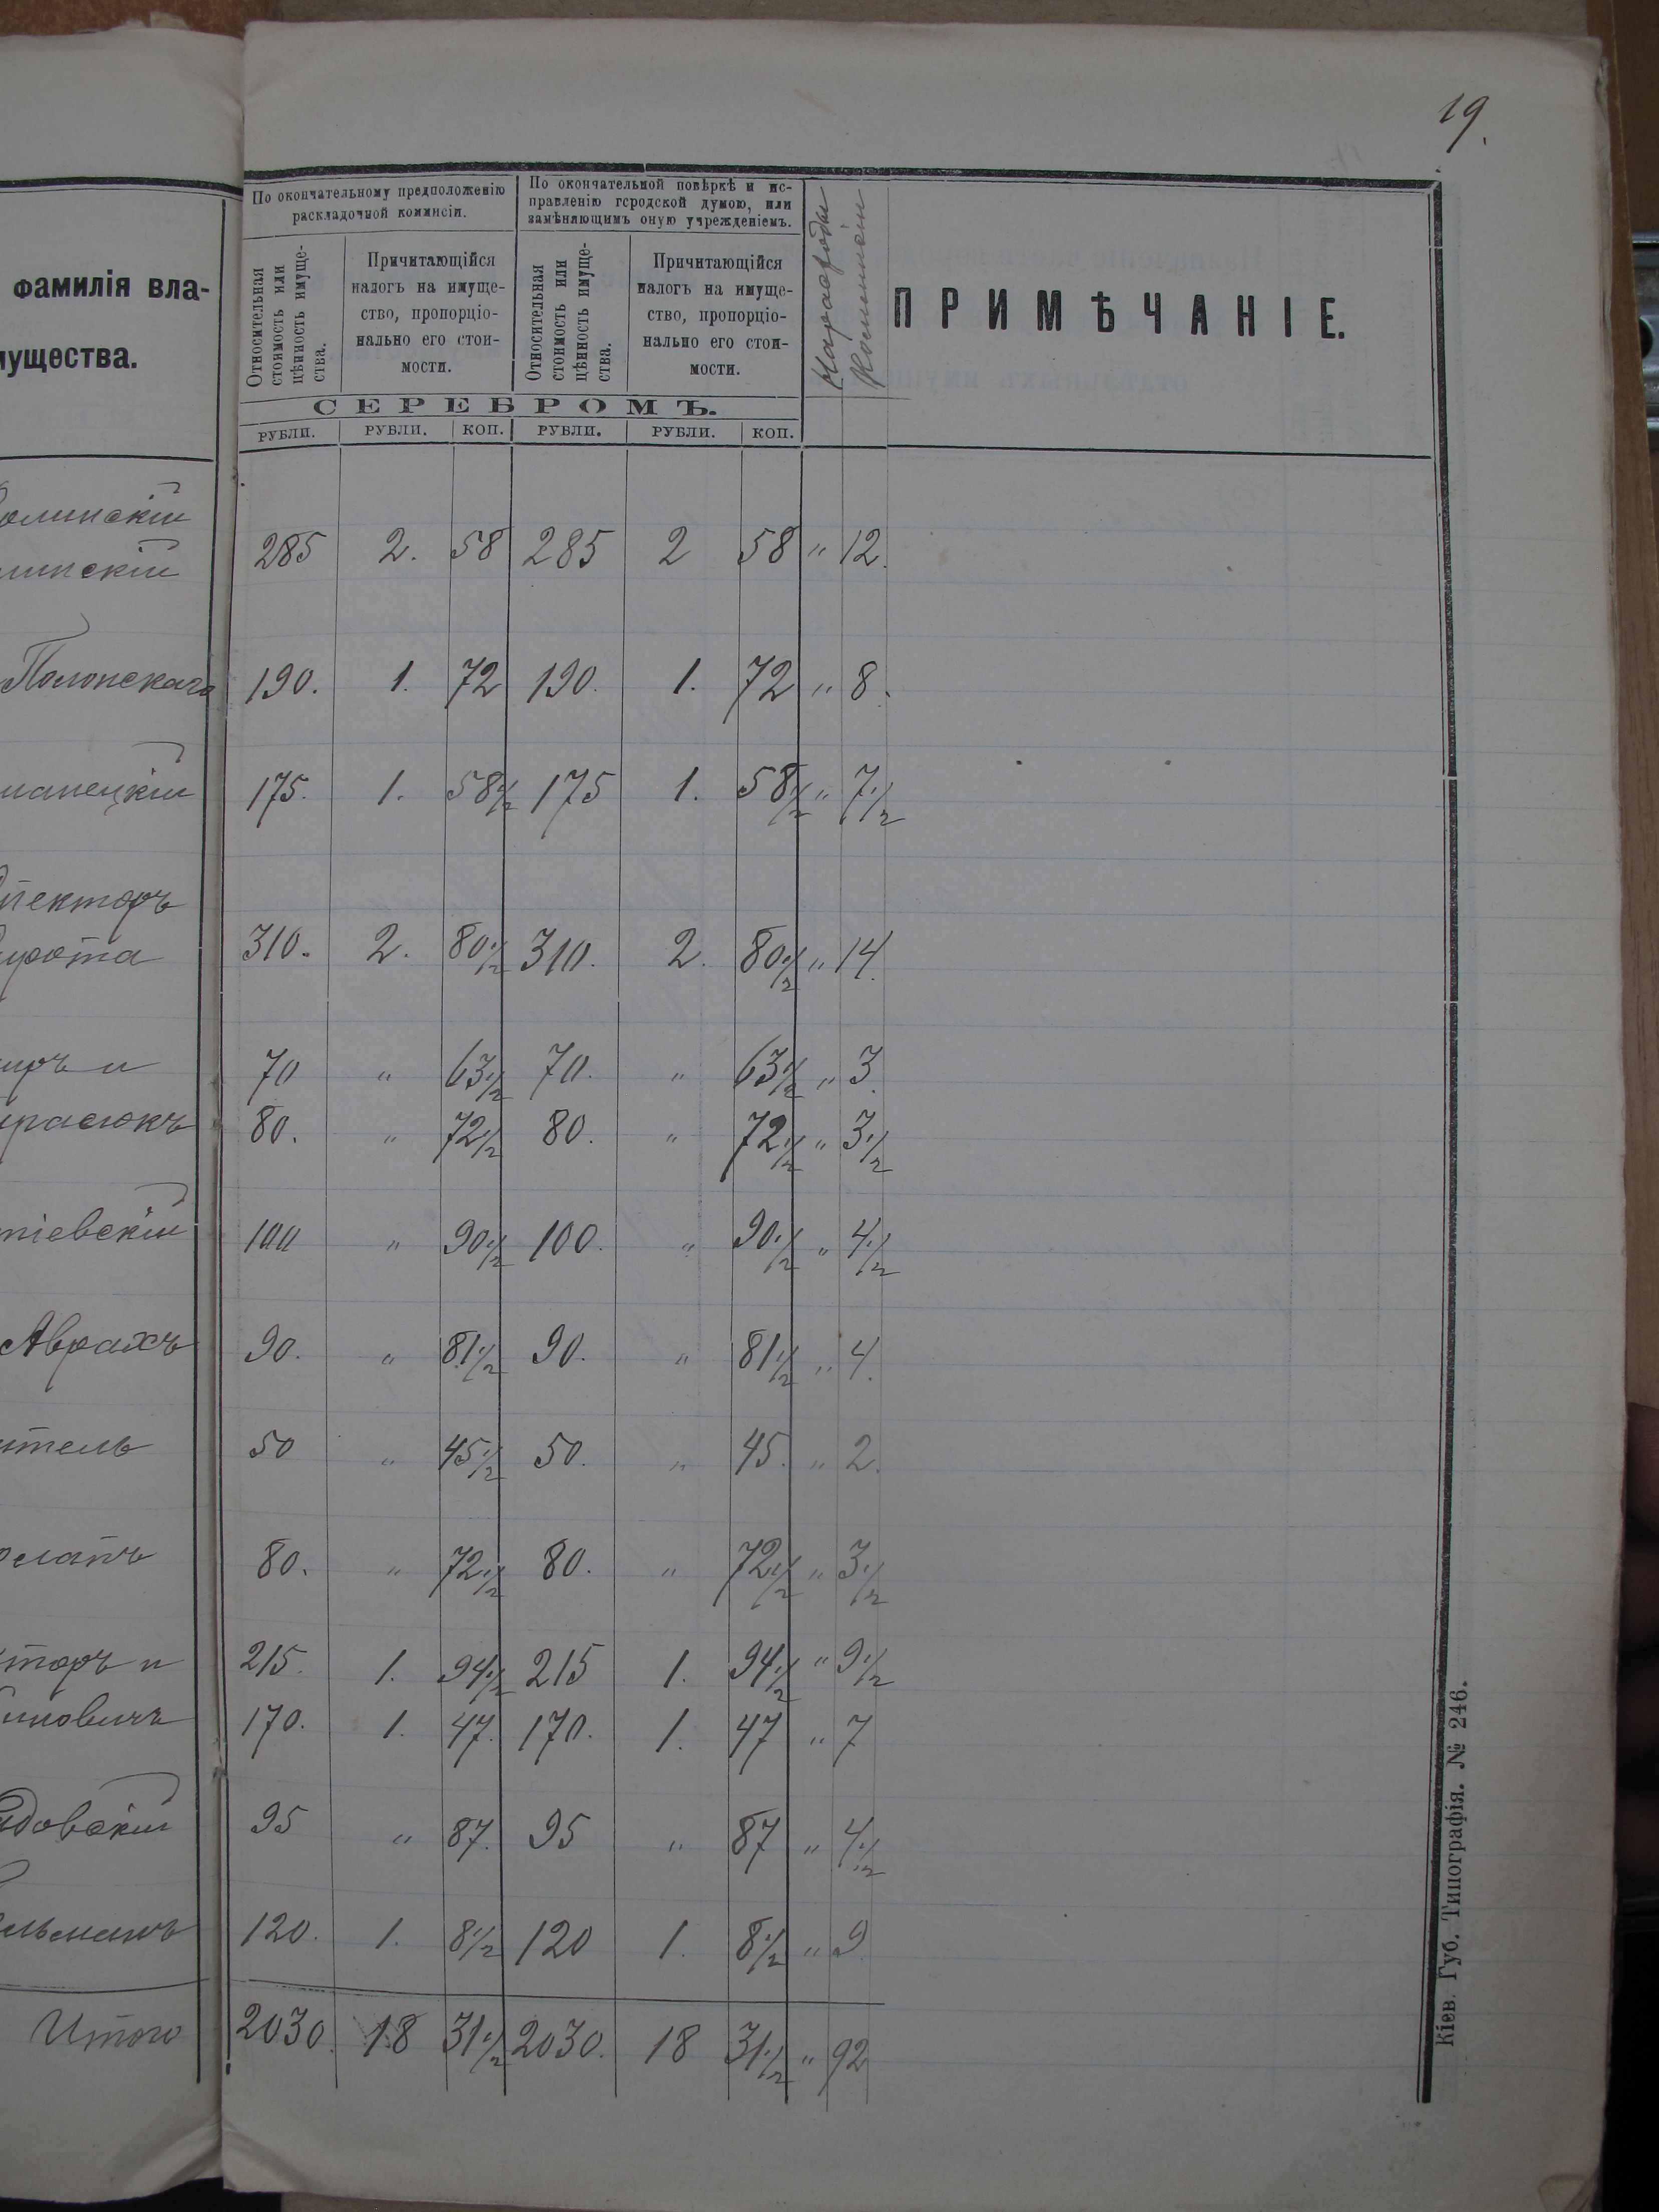 19.
фамилія вла-
мущества.
По окончательному предположенію
раскладочной коммисіи.
По окончательной повѣркѣ и ис-
правленію городской думою, или
замѣняющимъ оную учрежденіемъ.
Относительная
стоимость или
цѣнность имуще-
ства.
Причитающійся
налогъ на имуще-
ство, пропорціо-
нально его стои-
мости.
Относительная
стоимость или
цѣнность имуще-
ства.
Причитающійся
налогъ на имуще-
ство, пропорціо-
нально его стои-
мости.
На расходы
Коммисіи
ПРИМѢЧАНІЕ.
СЕРЕБРОМЪ.
РУБЛИ. РУБЛИ. КОП. РУБЛИ. РУБЛИ. КОП.
олинскій
285 2. 58 285 2 58 " 12.
линскій
Полонскаго 190. 1. 72 190. 1. 72 " 8.
манецкій 175. 1. 58 1/2 175 1. 58 1/2 " 7 1/2
пекторъ
ирота 310. 2. 80 1/2 310. 2. 80 1/2 " 14.
иръ и 70 " 63 1/2 70. " 63 1/2 " 3.
расюкъ 80. " 72 1/2 80. " 72 1/2 " 3 1/2
тіевскій 100 " 90 1/2 100. " 90 1/2 " 4 1/2
Аврахъ 90. " 81 1/2 90. " 81 1/2 " 4.
итель 50 " 45 1/2 50. " 45. " 2.
80. " 72 1/2 80. " 72 1/2 " 3 1/2
торъ и 215. 1. 94 1/2 215 1. 94 1/2 " 9 1/2
иновичъ 170. 1. 47. 170. 1. 47 " 7
довскій 95 " 87. 95 " 87 " 4 1/2
ельманъ 120. 1. 8 1/2 120 1. 8 1/2 " 9
Итого 2030. 18 31 1/2 2030. 18 31 1/2 " 92
Кіев. Губ. Типографія. № 246.